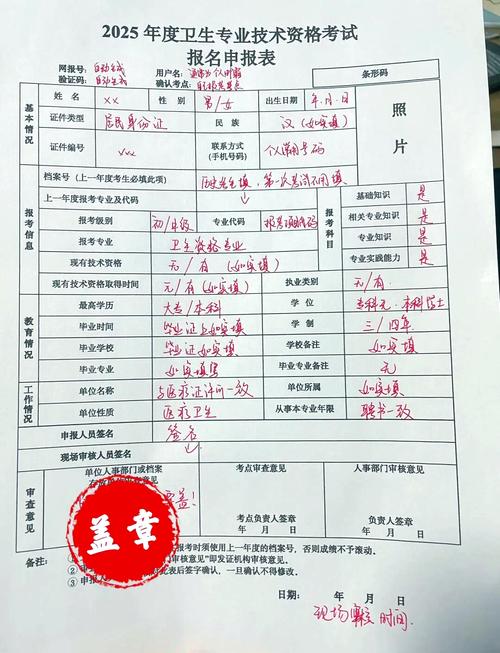 2025 年度卫生专业技术资格考试
报名申报表
网报号: 自动生成 用户名: 通常为个人邮箱
验证码: 自动生成 确认考点: 条形码
基本情况 姓名 xx 性别 男/女 出生日期 年.月.日 照片
证件类型 居民身份证 民族 汉 (如实填)
证件编号 xxx 联系方式(手机号码) 个人常用号码
档案号(上一年度考生必填此项) 历史考生填,第一次考试不用填
报考信息 上一年度报考专业及代码 报考科目 基础知识 是
报考级别 初/中级 专业代码 报考项目代码 相关专业知识 是
报考专业 卫生资格专业 专业知识 是
现有技术资格 无/有 (如实填) 专业实践能力 是
现有技术资格取得时间 无/有 (如实填) 执业类别 无/有.
教育情况 最高学历 大专/本科 学位 专科无.本科学士
毕业时间 毕业证上如实填 学制 三/四年
毕业学校 毕业证如实填 学校备注 如实填
毕业专业 如实填写 毕业专业备注 无
工作情况 单位名称 与医疗证许可一致 单位所属 如实填
单位性质 医疗卫生 从事本专业年限 聘书一致
申报人员签名 签名
现场审核人员签名
审查意见 单位人事部门或档案 考点审查意见 人事部门审核意见
盖章
考点负责人签章 负责人签章
年 月 日 年 月 日
备注: 报考时须使用上一年度的档案号,否则成绩不予滚动。
② 审核意见"即发证机构审核意见。
③ 申报人 表后签字确认,一旦确认不得修改。
日期: 年 月 日
现场审核时间.